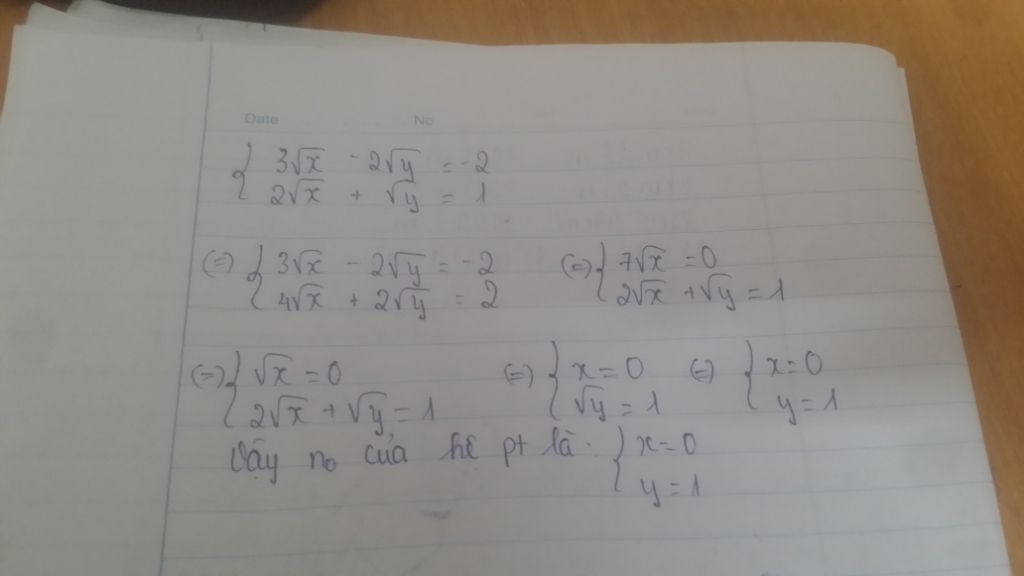 Date No
{ 3√x - 2√y = -2
2√x + √y = 1
(=) { 3√x - 2√y = -2
4√x + 2√y = 2
(=) { 7√x = 0
2√x + √y = 1
(=) { √x = 0
2√x + √y = 1
(=) { x = 0
√y = 1
(=) { x = 0
y = 1
Vậy no của hệ pt là: { x = 0
y = 1